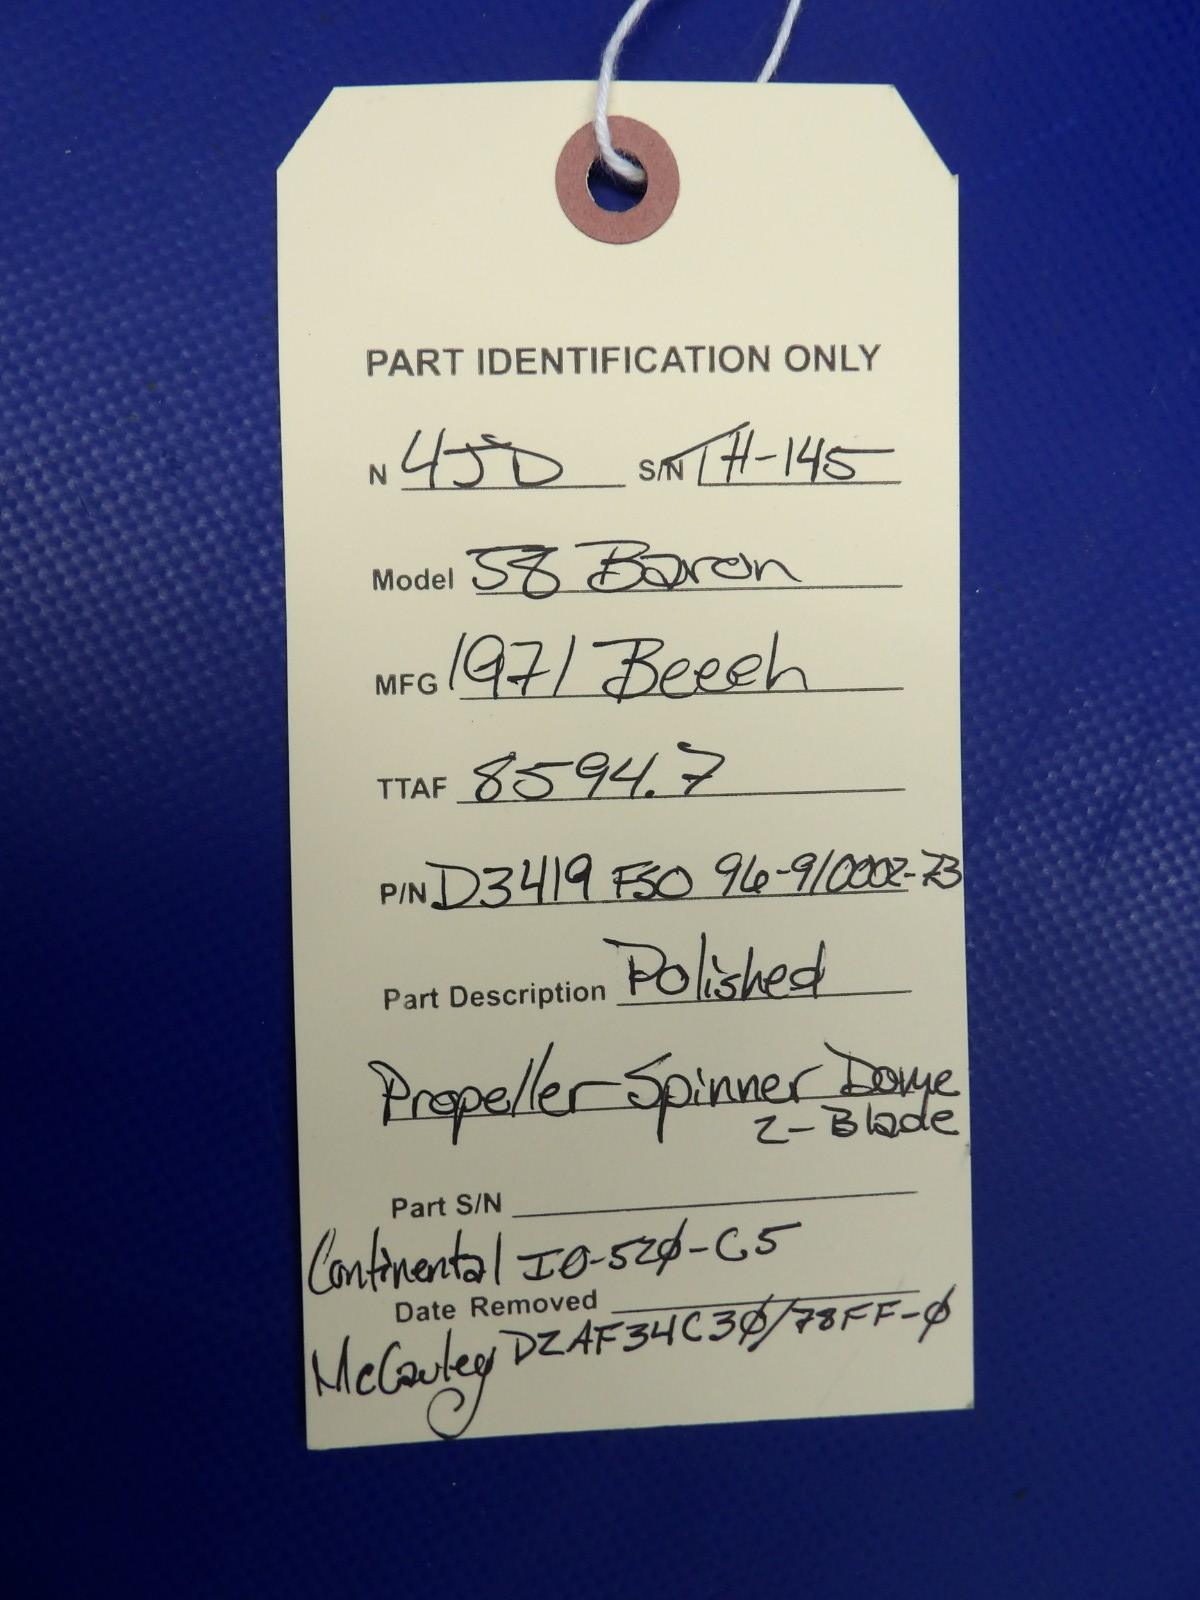 PART IDENTIFICATION ONLY
N 4JD S/N TH-145
Model 58 Baron
MFG 1971 Beech
TTAF 8594.7
P/N D3419 FSO 96-910002-73
Part Description Polished
Propeller Spinner Dome
2-Blade
Part S/N
Continental IO-520-C5
Date Removed
McCauley D2AF34C30/78FF-0